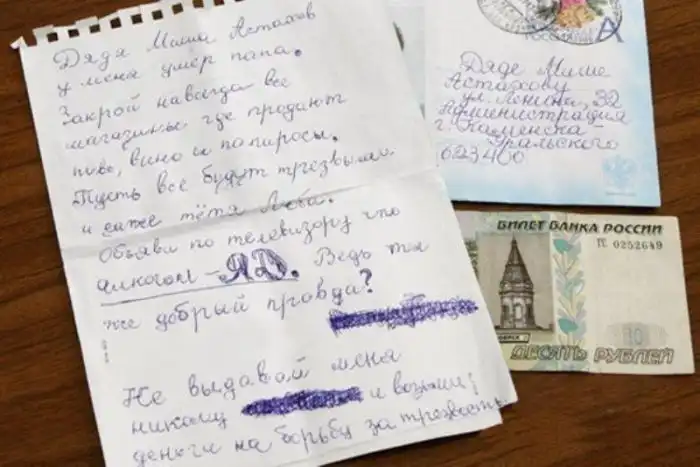 Дядя Миша Астахов
у меня умер папа.
Закрой навсегда все
магазины где продают
пиво, вино и папиросы.
Пусть все будут трезвыми
и даже тётя Люба.
Объяви по телевизору что
алкоголь – ЯД. Ведь ты
же добрый правда?
Не выдавай меня
никому и возьми
деньги на борьбу за трезвость
А
Дяде Мише
Астахову
ул. Ленина, 32
Администрация
г. Каменска-
Уральского
623400
БИЛЕТ БАНКА РОССИИ
ГС 0252649
10
ДЕСЯТЬ РУБЛЕЙ